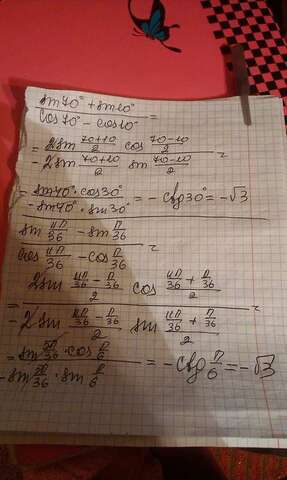 sin70° + sin10°
cos70° - cos10° =
= 2sin 70+10/2 cos 70-10/2
-2sin 70+10/2 sin 70-10/2 =
= sin40° · cos30°
-sin40° · sin30° = -ctg30° = -√3
sin 11π/36 - sin π/36
cos 11π/36 - cos π/36 =
= 2sin 11π/36 - π/36 /2 cos 11π/36 + π/36 /2
-2sin 11π/36 - π/36 /2 sin 11π/36 + π/36 /2 =
= sin 5π/36 · cos π/6
-sin 5π/36 · sin π/6 = -ctg π/6 = -√3